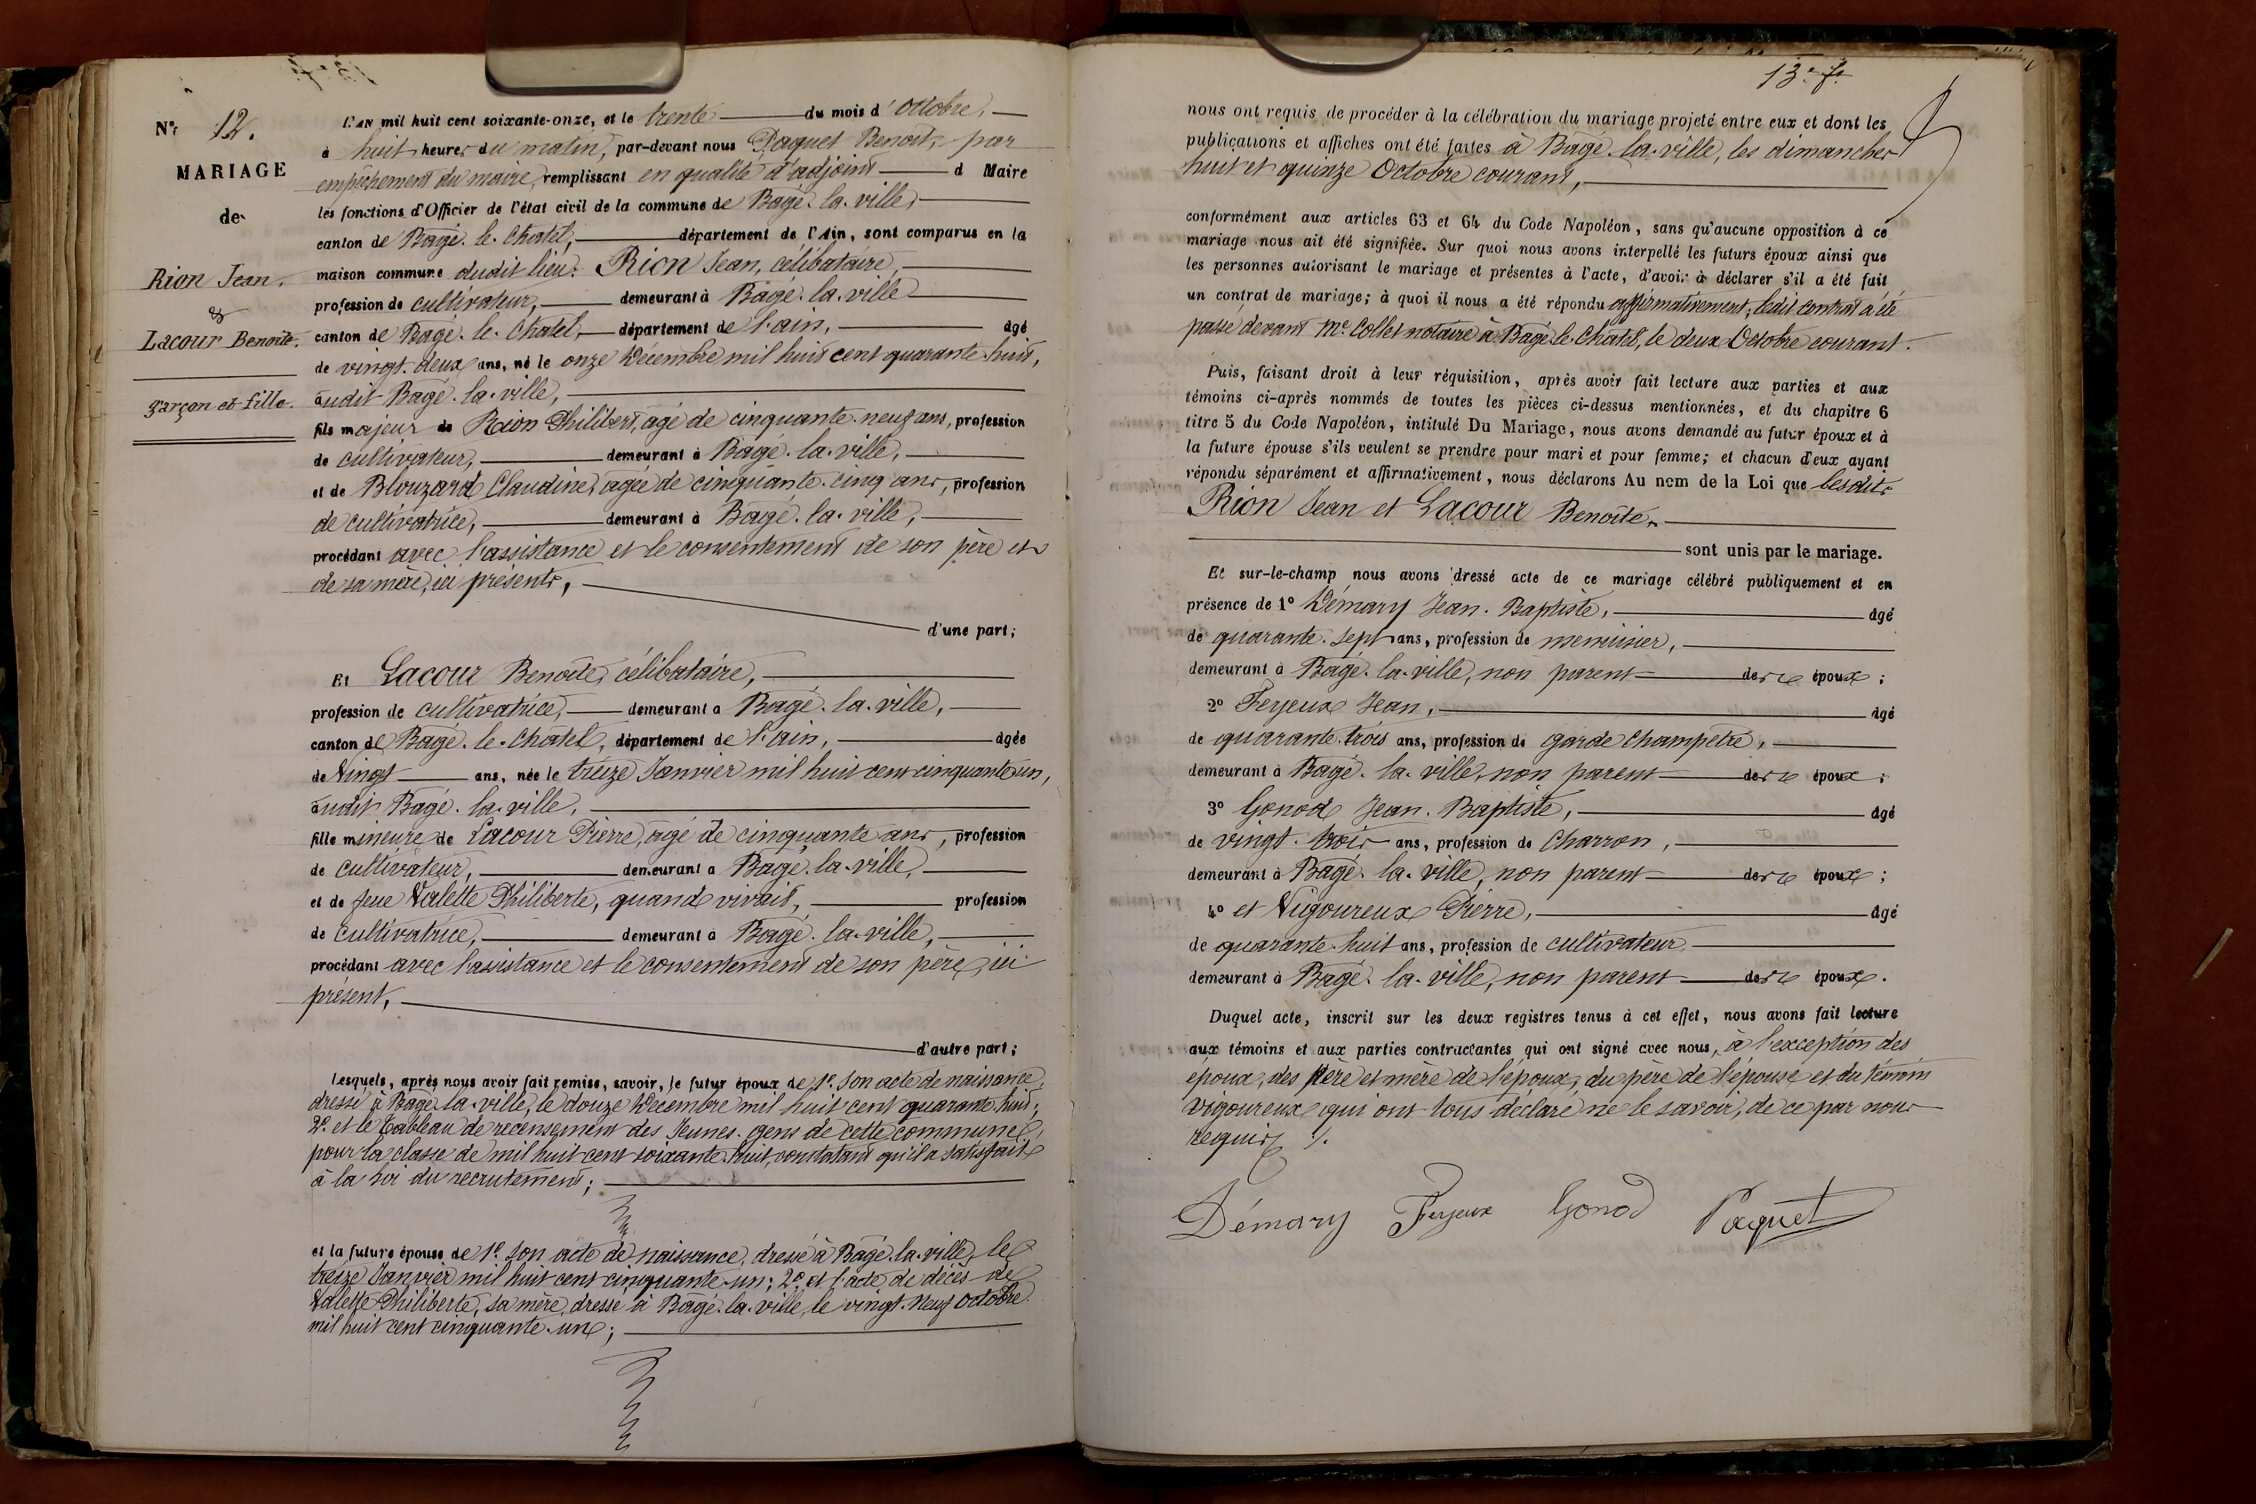 N° 12.
MARIAGE
de
Rion Jean.
&
Lacour Benoite.
garçon et fille.
L'AN mil huit cent soixante-onze, et le trente du mois d'Octobre,
à huit heures du matin, par-devant nous Paquet Benoit, par
empêchement du maire, remplissant en qualité d'adjoint d Maire
les fonctions d'Officier de l'état civil de la commune de Bâgé-la-ville,
canton de Bâgé-le-Chatel, département de l'Ain, sont comparus en la
maison commune dudit lieu: Rion Jean, célibataire,
profession de cultivateur, demeurant à Bâgé-la-ville
canton de Bâgé-le-Chatel, département de l'ain, âgé
de vingt-deux ans, né le onze Décembre mil huit cent quarante-huit,
audit Bâgé-la-ville,
fils majeur de Rion Philibert, âgé de cinquante-neuf ans, profession
de cultivateur, demeurant à Bâgé-la-ville,
et de Blouzard Claudine, âgée de cinquante-cinq ans, profession
de cultivatrice, demeurant à Bâgé-la-ville,
procédant avec l'assistance et le consentement de son père et
de sa mère, ici présents,
d'une part;
Et Lacour Benoite, célibataire,
profession de cultivatrice, demeurant à Bâgé-la-ville,
canton de Bâgé-le-Chatel, département de l'ain, âgée
de Vingt ans, née le treize Janvier mil huit cent cinquante-un,
audit Bâgé-la-ville,
fille mineure de Lacour Pierre, âgé de cinquante ans, profession
de cultivateur, demeurant à Bâgé-la-ville,
et de feue Valette Philiberte, quand vivait, profession
de cultivatrice, demeurant à Bâgé-la-ville,
procédant avec l'assistance et le consentement de son père, ici
présent,
d'autre part;
Lesquels, après nous avoir fait remise, savoir, le futur époux de 1° son acte de naissance,
dressé à Bâgé-la-ville, le douze Décembre mil huit cent quarante-huit;
2° et le tableau de recensement des Jeunes-gens de cette commune,
pour la classe de mil huit cent soixante-huit, constatant qu'il a satisfait
à la loi du recrutement;
et la future épouse de 1° son acte de naissance, dressé à Bâgé-la-ville, le
treize Janvier mil huit cent cinquante-un; 2° et l'acte de décès de
Valette Philiberte, sa mère, dressé à Bâgé-la-ville, le vingt-neuf Octobre
mil huit cent cinquante-un;
13e fo
nous ont requis de procéder à la célébration du mariage projeté entre eux et dont les
publications et affiches ont été faites à Bâgé-la-ville, les dimanches
huit et quinze Octobre courant,
conformément aux articles 63 et 64 du Code Napoléon, sans qu'aucune opposition à ce
mariage nous ait été signifiée. Sur quoi nous avons interpellé les futurs époux ainsi que
les personnes autorisant le mariage et présentes à l'acte, d'avoir à déclarer s'il a été fait
un contrat de mariage; à quoi il nous a été répondu affirmativement; ledit contrat a été
passé devant Me Collet notaire à Bâgé-le-Chatel, le deux Octobre courant.
Puis, faisant droit à leur réquisition, après avoir fait lecture aux parties et aux
témoins ci-après nommés de toutes les pièces ci-dessus mentionnées, et du chapitre 6
titre 5 du Code Napoléon, intitulé Du Mariage, nous avons demandé au futur époux et à
la future épouse s'ils veulent se prendre pour mari et pour femme; et chacun d'eux ayant
répondu séparément et affirmativement, nous déclarons Au nom de la Loi que lesdits
Rion Jean et Lacour Benoite,
sont unis par le mariage.
Et sur-le-champ nous avons dressé acte de ce mariage célébré publiquement et en
présence de 1° Démary Jean-Baptiste, âgé
de quarante-sept ans, profession de menuisier,
demeurant à Bâgé-la-ville, non parent des époux;
2° Feyeux Jean, âgé
de quarante-trois ans, profession de garde champêtre,
demeurant à Bâgé-la-ville, non parent des époux;
3° Gonod Jean-Baptiste, âgé
de vingt-trois ans, profession de Charron,
demeurant à Bâgé-la-ville, non parent des époux;
4° et Vigoureux Pierre, âgé
de quarante-huit ans, profession de cultivateur
demeurant à Bâgé-la-ville, non parent des époux.
Duquel acte, inscrit sur les deux registres tenus à cet effet, nous avons fait lecture
aux témoins et aux parties contractantes qui ont signé avec nous, à l'exception des
époux, des père et mère de l'époux, du père de l'épouse et du témoin
Vigoureux qui ont tous déclaré ne le savoir, de ce par nous
requis ./.
Démary Feyeux Gonod Paquet